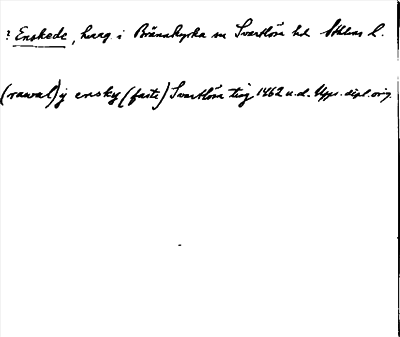 ? Enskede, herrg i Brännkyrka sn Svartlösa hd Sthlms l.
(rawal) j ensky (faste) Svartlösa ting 1462 u.d. Upps. dipl. orig.